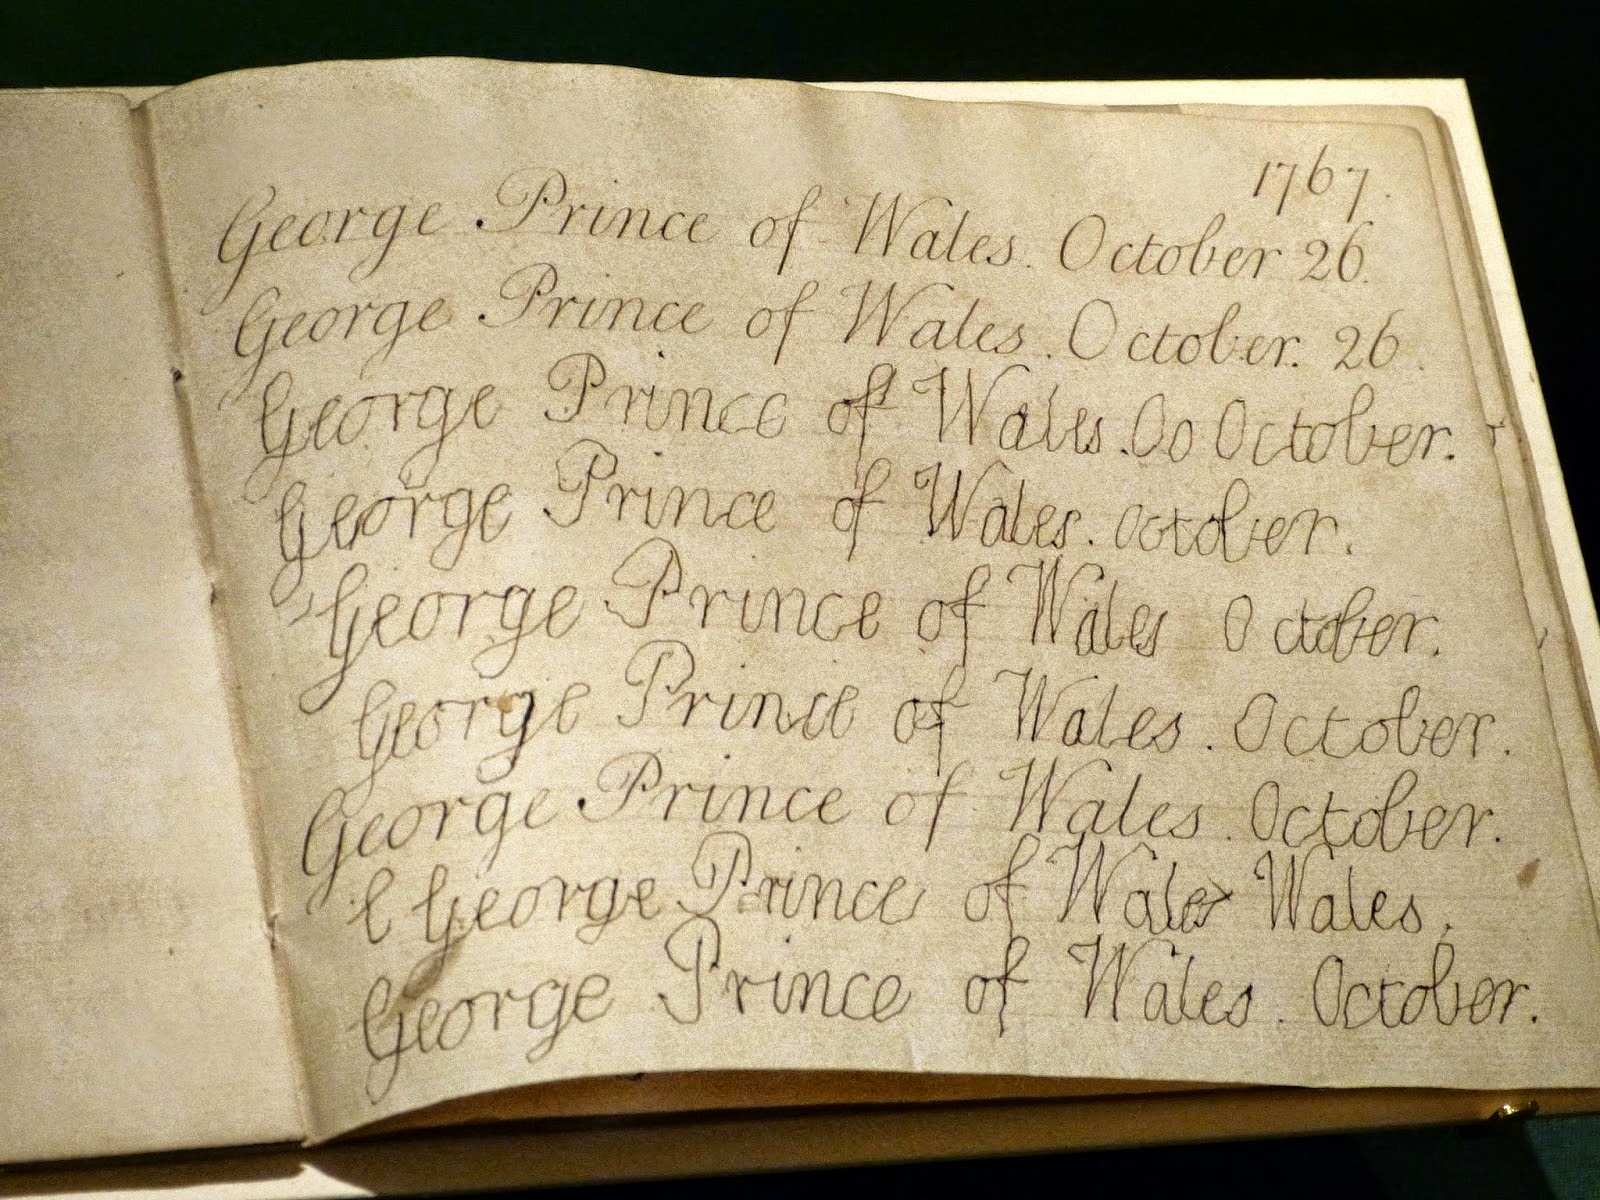 1767.
George Prince of Wales. October 26.
George Prince of Wales. October. 26.
George Prince of Wales. Oo October.
George Prince of Wales. October.
George Prince of Wales October.
George Prince of Wales. October.
George Prince of Wales. October.
l George Prince of Wales Wales.
George Prince of Wales. October.